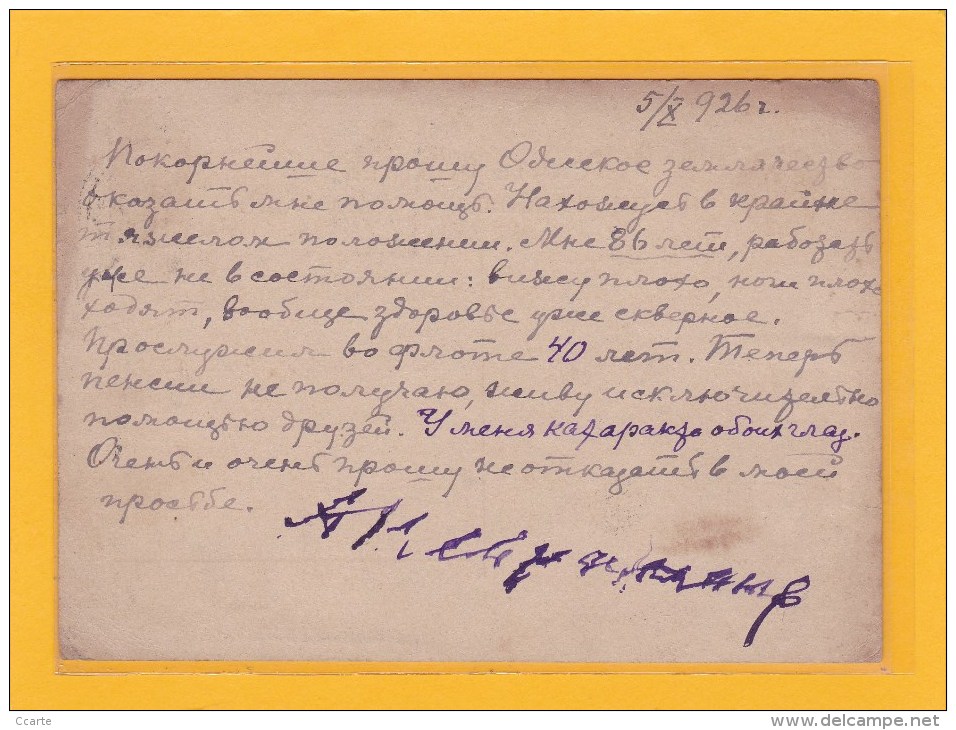 5/X 926 г.
Покорнейше прошу Одесское землячество
оказать мне помощь. Нахожусь в крайне
тяжелом положении. Мне 86 лет, работать
уже не в состоянии: вижу плохо, ноги плохо
ходят, вообще здоровье уже скверное.
Прослужил во флоте 40 лет. Теперь
пенсии не получаю, живу исключительно
помощью друзей. У меня катаракта обоих глаз.
Очень и очень прошу не отказать в моей
просьбе.
Ccarte
www.delcampe.net